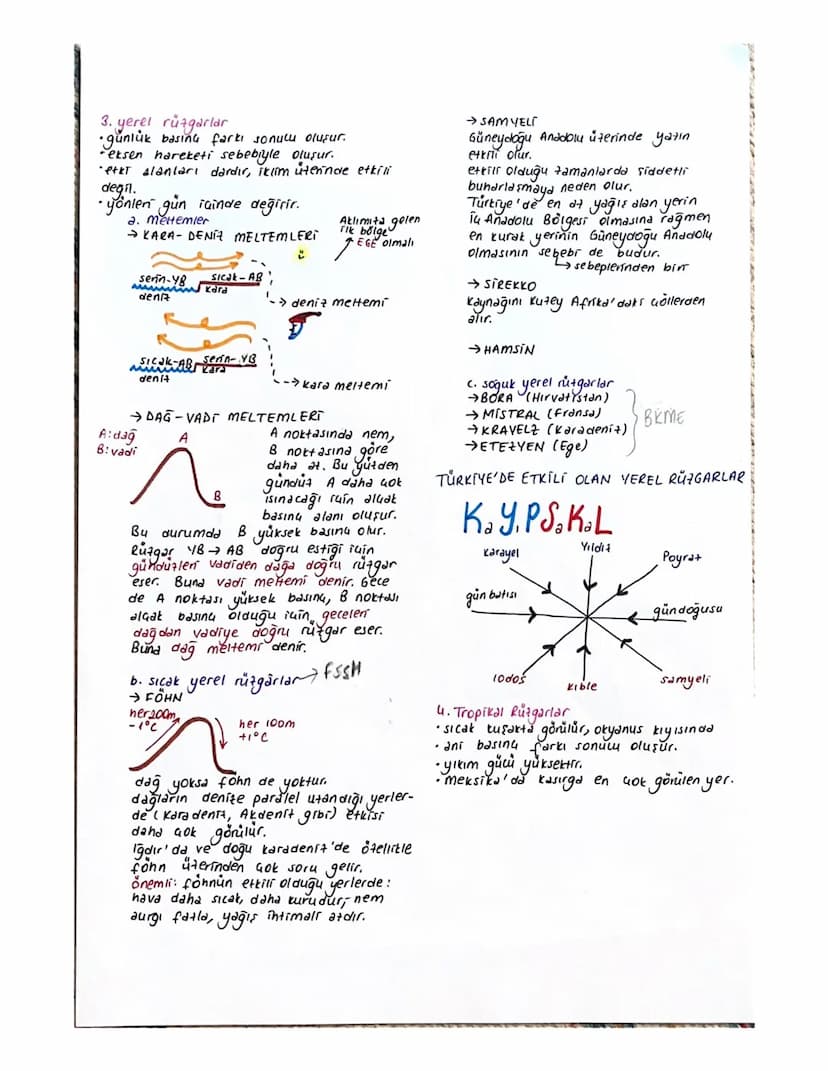 3. yerel rüzgarlar
• günlük basınç farkı sonucu oluşur.
• eksen hareketi sebebiyle oluşur.
• etki alanları dardır, iklim üzerinde etkili
değil.
• yönleri gün içinde değişir.
a. meltemler
→ KARA-DENİZ MELTEMLERİ
Aklımıza gelen
ilk bölge
EGE olmalı
serin-YB
sıcak-AB
kara
deniz
→ deniz meltemi
sıcak-AB
serin-YB
kara
deniz
→ kara meltemi
→ DAĞ-VADİ MELTEMLERİ
A: dağ
B: vadi
A
B
A noktasında nem,
B noktasına göre
daha az. Bu yüzden
gündüz A daha çok
ısınacağı için alçak
basınç alanı oluşur.
Bu durumda B yüksek basınç olur.
Rüzgar YB → AB doğru estiği için
gündüzleri vadiden dağa doğru rüzgar
eser. Buna vadi meltemi denir. Gece
de A noktası yüksek basınç, B noktası
alçak basınç olduğu için, geceleri
dağdan vadiye doğru rüzgar eser.
Buna dağ meltemi denir.
b. sıcak yerel rüzgârlar → FSSH
→ FÖHN
her200m
-1°C
her 100m
+1°C
dağ yoksa föhn de yoktur.
dağların denize paralel uzandığı yerler-
de (Karadeniz, Akdeniz gibi) etkisi
daha çok görülür.
Iğdır'da ve doğu karadeniz'de özellikle
föhn üzerinden çok soru gelir.
önemli: föhnün etkili olduğu yerlerde:
hava daha sıcak, daha kurudur, nem
açığı fazla, yağış ihtimali azdır.
→ SAMYELİ
Güneydoğu Anadolu üzerinde yazın
etkili olur.
etkili olduğu zamanlarda şiddetli
buharlaşmaya neden olur.
Türkiye'de en az yağış alan yerin
İç Anadolu Bölgesi olmasına rağmen
en kurak yerinin Güneydoğu Anadolu
olmasının sebebi de budur.
→ sebeplerinden biri
→ SİROKKO
Kaynağını Kuzey Afrika'daki çöllerden
alır.
→ HAMSİN
c. soğuk yerel rüzgarlar
→ BORA (Hırvatistan)
→ MİSTRAL (Fransa)
→ KRAVELZ (Karadeniz)
→ ETEZYEN (Ege)
BKME
TÜRKİYE'DE ETKİLİ OLAN YEREL RÜZGARLAR
KaYıPSaKaL
Karayel
Yıldız
Poyraz
gün batısı
gündoğusu
lodos
Kıble
samyeli
4. Tropikal Rüzgarlar
• sıcak kuşakta görülür, okyanus kıyısında
• ani basınç farkı sonucu oluşur.
• yıkım gücü yüksektir.
• meksika'da kasırga en çok görülen yer.